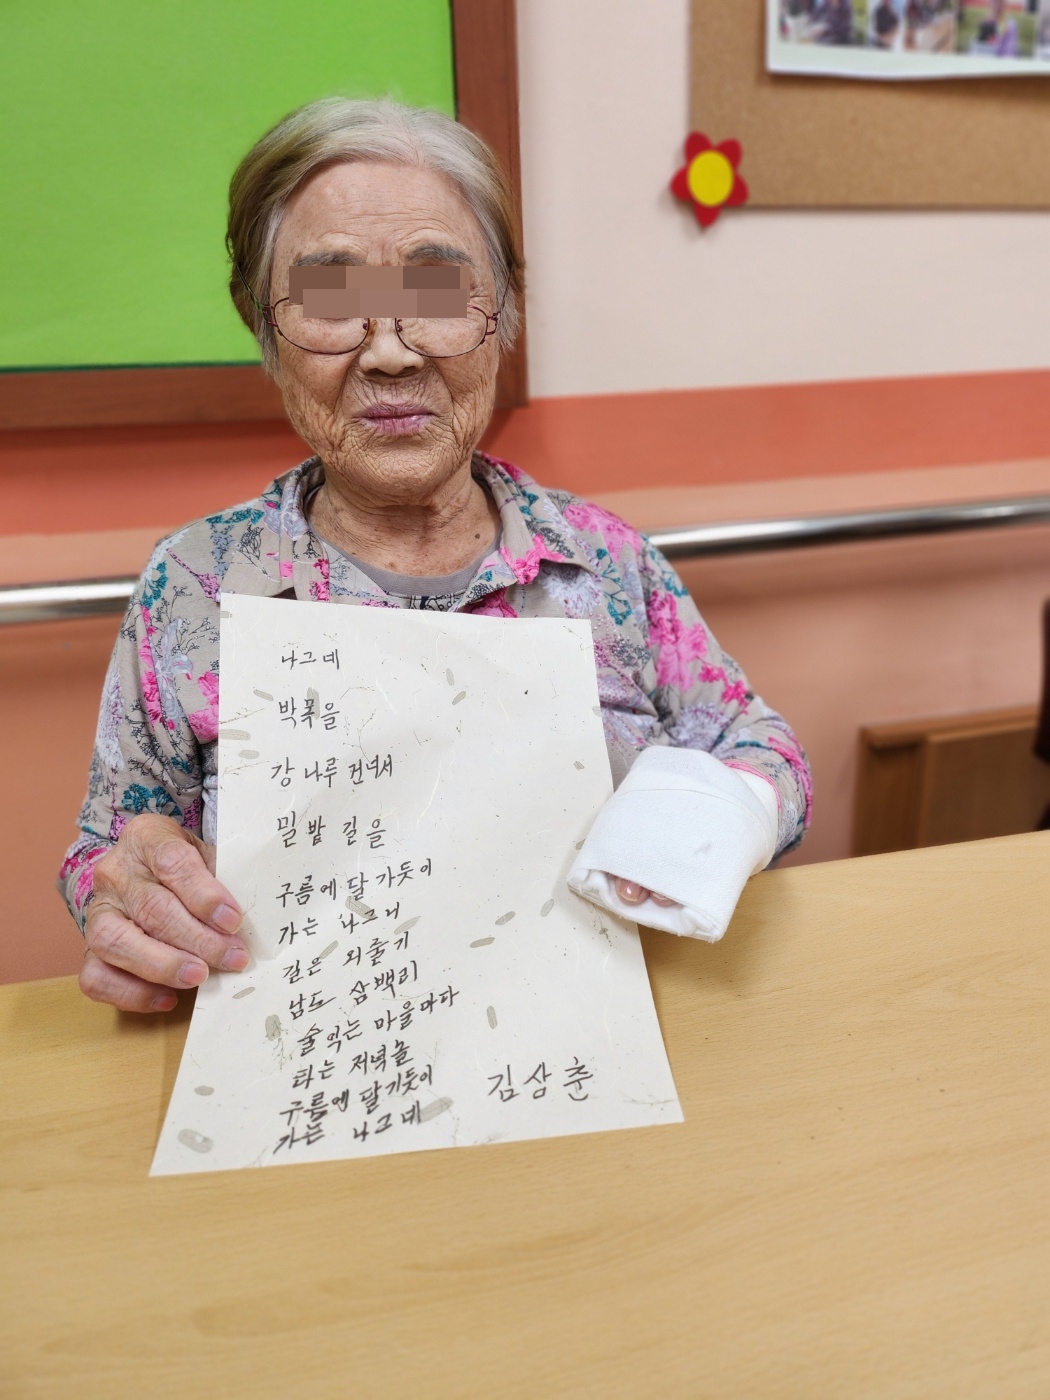 나그네
박목을
강 나루 건너서
밀 밭 길을
구름에 달 가듯이
가는 나그너
길은 외줄기
남도 삼백리
술익는 마을마다
타는 저녁놀
구름에 달가듯이
가는 나그네
김상춘